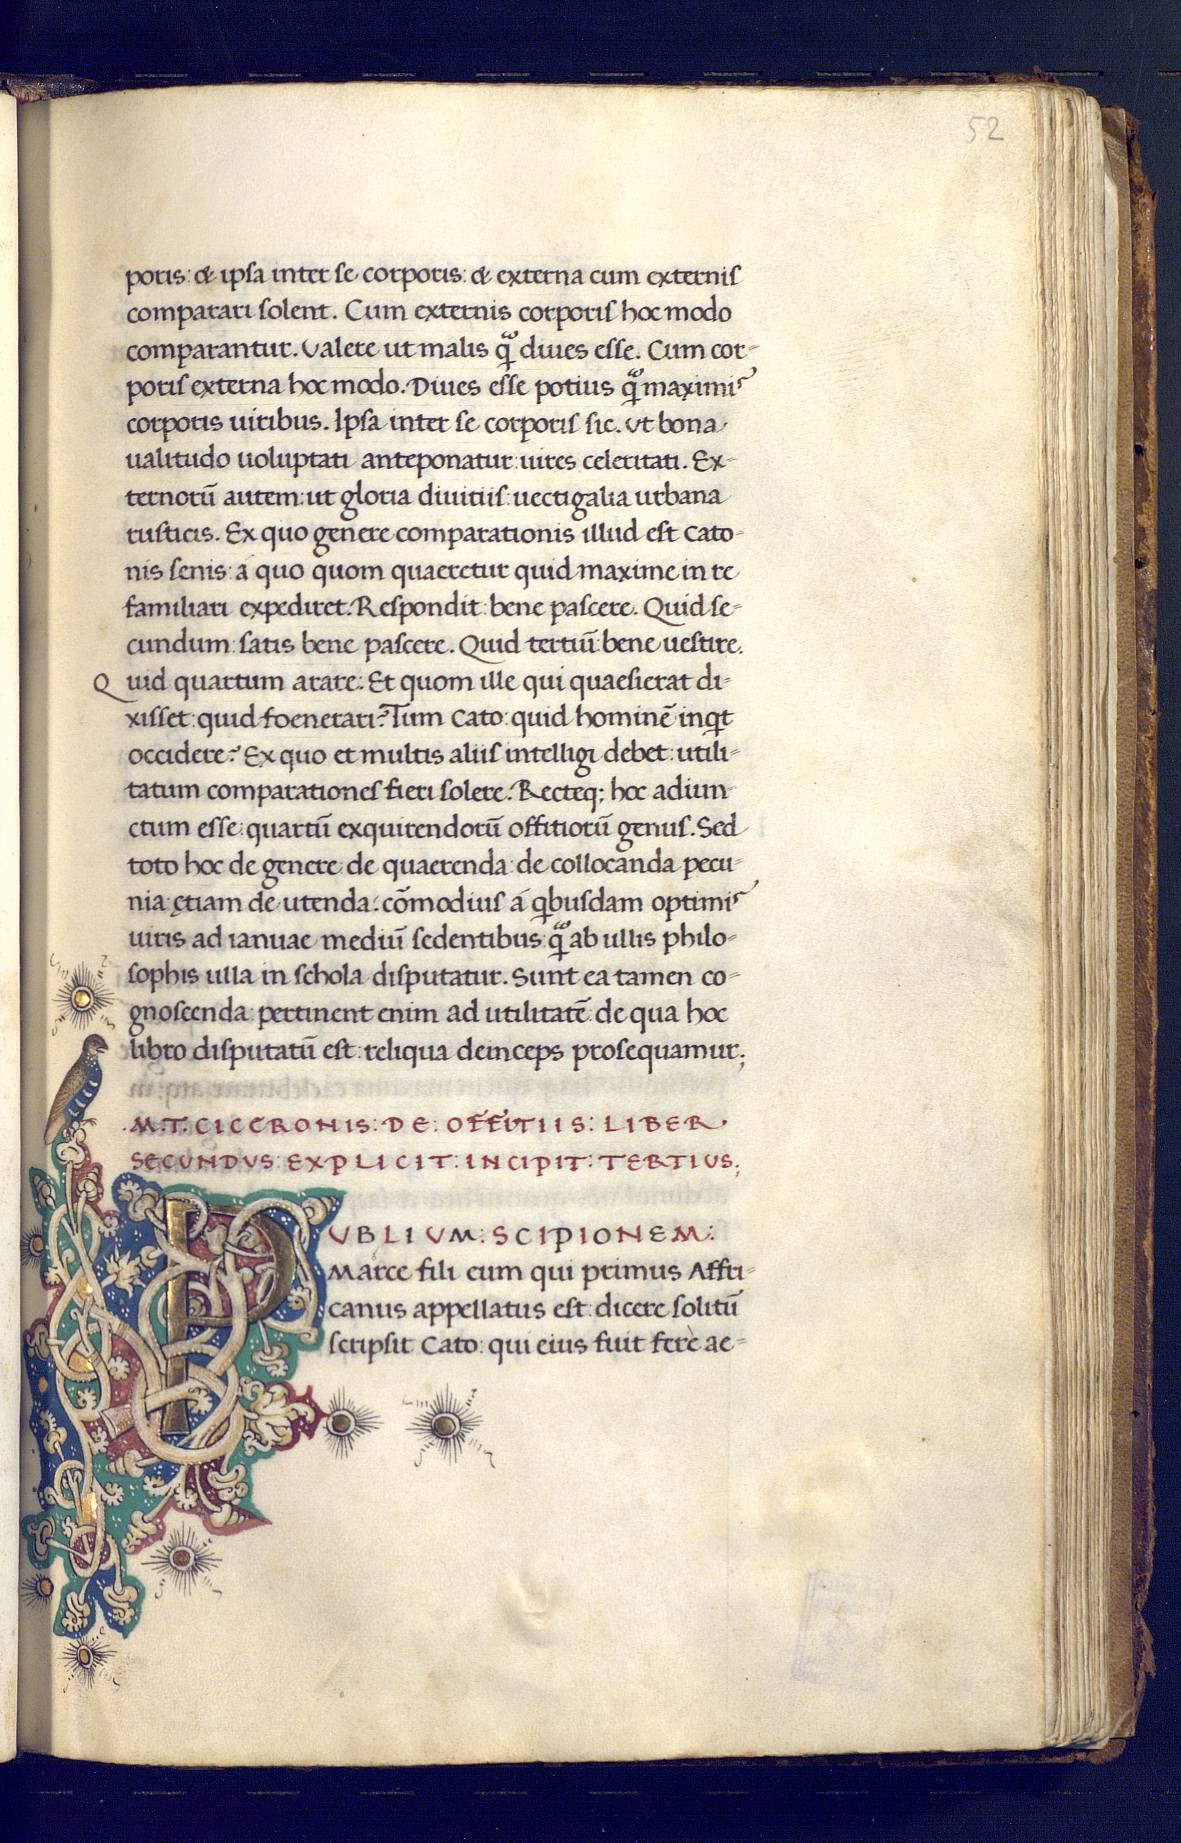 52
poris: & ipsa inter se corporis: & externa cum externis
comparari solent. Cum externis corporis hoc modo
comparantur. Valere ut malis q̃ diues esse. Cum cor-
poris externa hoc modo. Diues esse potius q̃ maximis
corporis uiribus. Ipsa inter se corporis sic. Vt bona
ualitudo uoluptati anteponatur: uires celeritati. Ex-
ternorū autem: ut gloria diuitiis: uectigalia urbana
rusticis. Ex quo genere comparationis illud est Cato-
nis senis: a quo quom quaeretur quid maxime in re
familiari expediret. Respondit: bene pascere. Quid se-
cundum: satis bene pascere. Quid tertiū: bene uestire.
Quid quartum arare: Et quom ille qui quaesierat di-
xisset: quid foenerari? Tum Cato: quid hominē inqt
occidere? Ex quo et multis aliis intelligi debet: utili-
tatum comparationes fieri solere. Recteq; hoc adiun
ctum esse: quartū exquirendorū offitiorū genus. Sed
toto hoc de genere de quaerenda: de collocanda pecu-
nia: ętiam de utenda: cōmodius a qbusdam optimis
uiris ad ianuae mediū sedentibus: q̃ ab ullis philo-
sophis ulla in schola disputatur. Sunt ea tamen co-
gnoscenda: pertinent enim ad utilitatē: de qua hoc
libro disputatū est: reliqua deinceps prosequamur;
.M.T. CICERONIS: DE: OFFITIIS: LIBER.
SECUNDVS: EXPLICIT: INCIPIT: TERTIUS;
PUBLIUM: SCIPIONEM:
Marce fili eum qui primus Affri-
canus appellatus est: dicere solitū
scripsit Cato: qui eius fuit ferè ae-